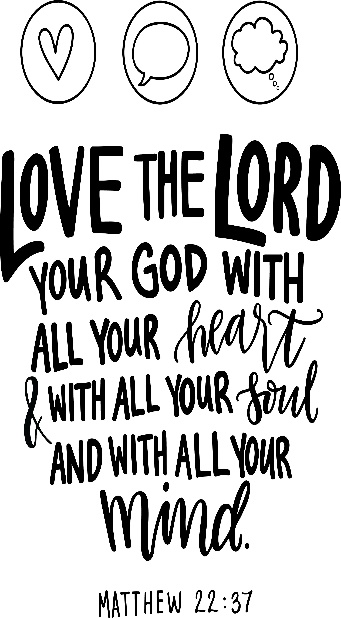 LOVE THE LORD
YOUR GOD WITH
ALL YOUR heart
& WITH ALL YOUR soul
AND WITH ALL YOUR
mind.
MATTHEW 22:37